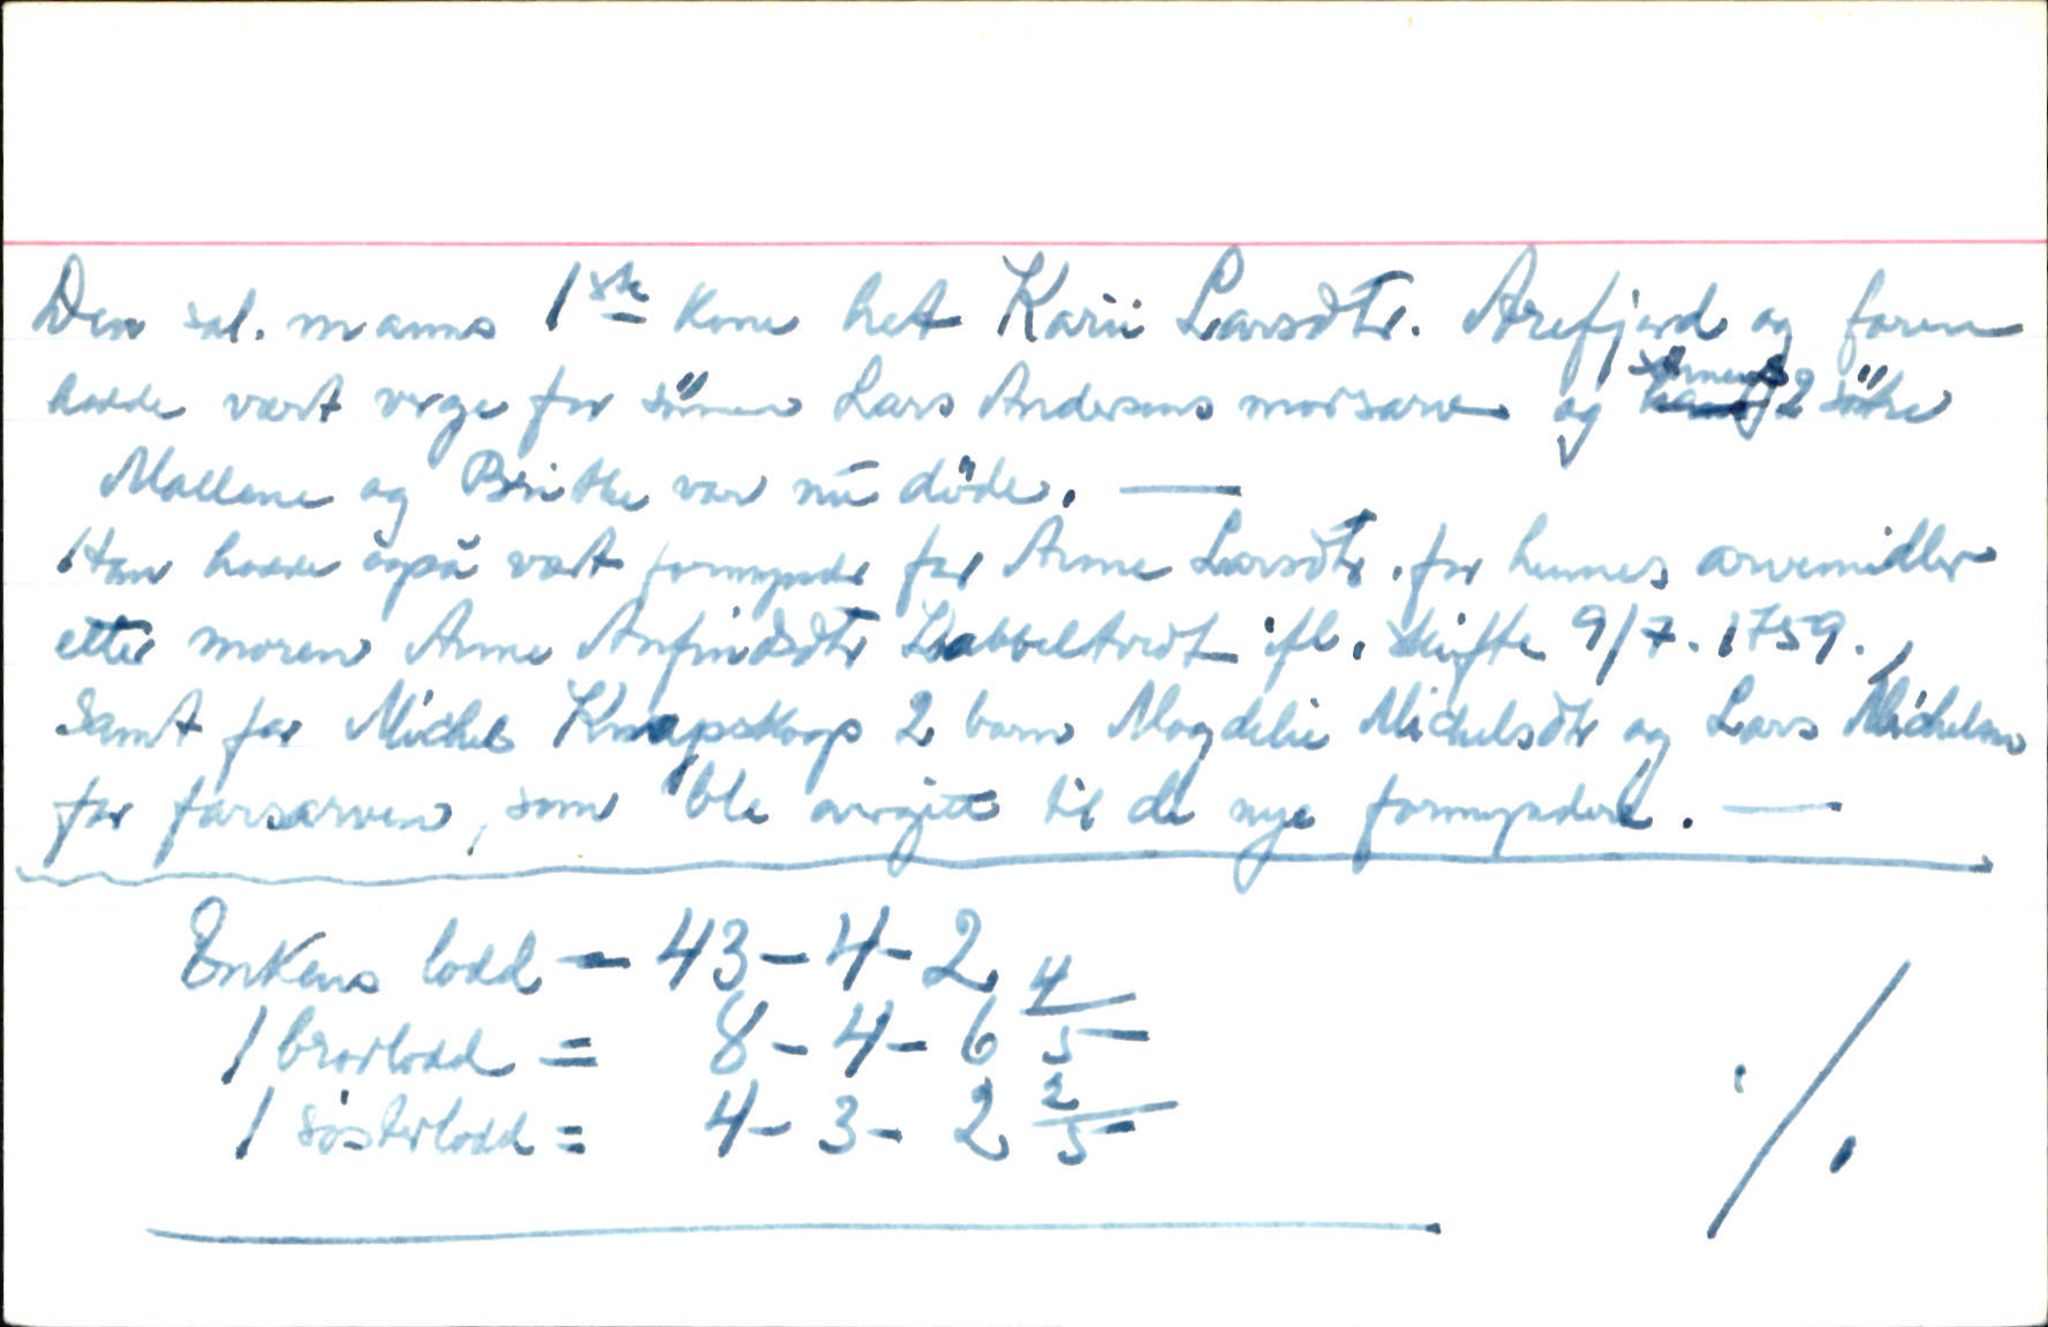 Den sal. manns 1ste kone het Kari Larsdtr. Arefjord og faren
hadde vært verge for sönnen Lars Andersens morsarv og 2 söstre
Mallene og Brithe var nu döde. —
Han hadde også vært formynder for Anne Larsdtr. for hennes arvemidler
etter moren Anne Anfindsdtr ifl. skifte 9/7.1759.
Samt for Michel Knapskog 2 barn Magdeli Michelsdtr og Lars Michelsen
for farsarven, som ble avgitt til de nye formyndere. —
Enkens lodd = 43-4-2
1 brorlodd = 8-4-6 4/5
1 sösterlodd = 4-3-2 2/5
./.